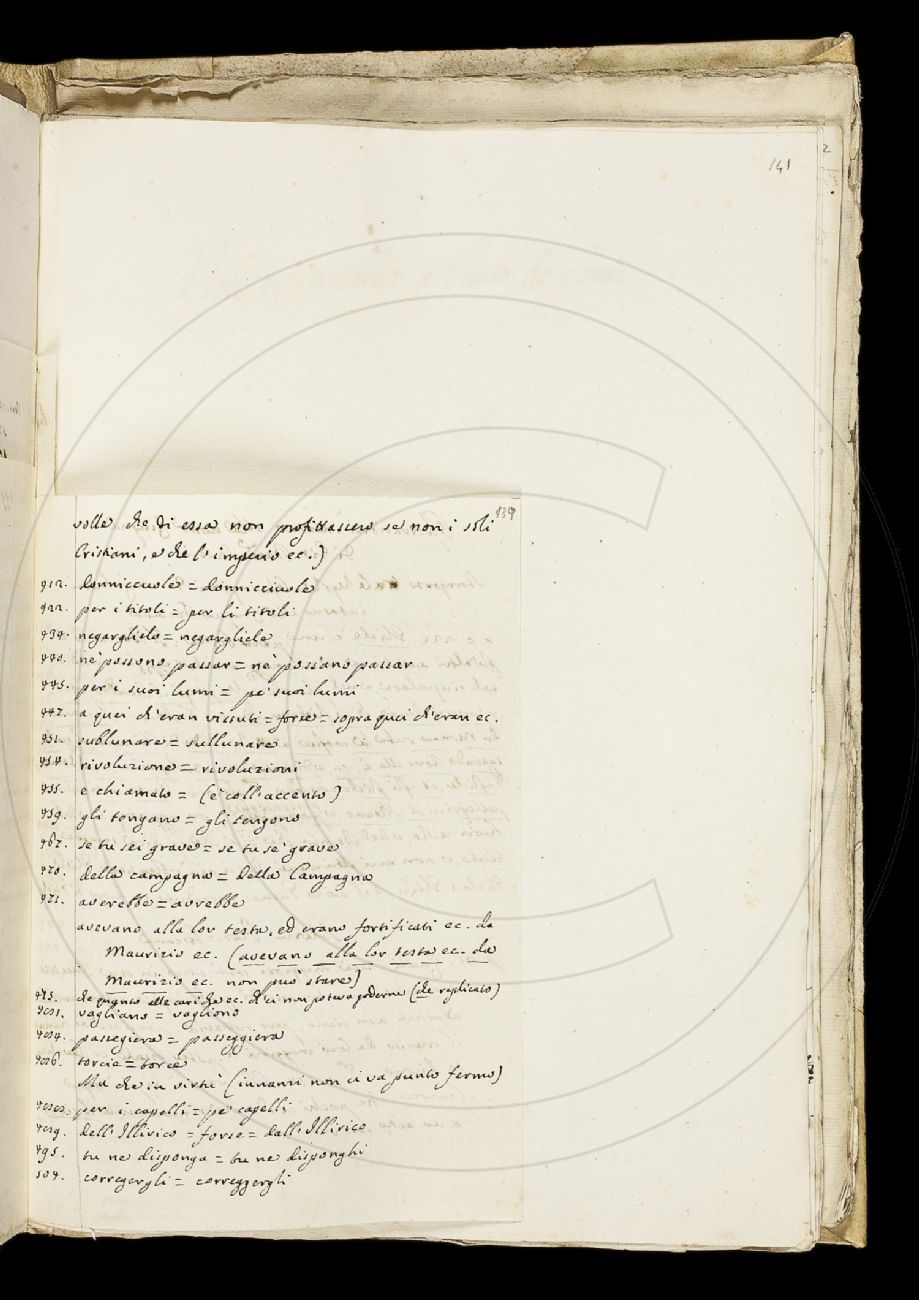 141
2
139
volle che di essa non profittassero se non i soli
Cristiani, e che l'imperio ec.)
412. donniccuole = donnicciuole
422. per i titoli = per li titoli
434. negarglielo = negargliele
440. nè possono passar = nè possano passar
445. per i suoi lumi = pe' suoi lumi
447. a quei ch'eran vissuti = forse = sopra quei ch'eran ec.
451. sublunare = sullunare
454. rivoluzione = rivoluzioni
455. e chiamato = (è coll'accento)
459. gli tengano = gli tengono
467. se tu sei grave = se tu se' grave
470. della campagna = della Campagna
471. averebbe = avrebbe
avevano alla lor testa, ed erano fortificati ec. da
Maurizio ec. (avevano alla lor testa ec. da
Maurizio ec. non può stare)
475. che quanto alle cariche ec. ch'ei non poteva goderne (che replicato)
vagliano = vagliono
passegiera = passeggiera
torcie = torce
Ma che in virtù (innanzi non ci va punto fermo)
per i capelli = pe' capelli
dell'Illirico = forse = dall'Illirico
495. tu ne disponga = tu ne disponghi
504. corregergli = correggergli